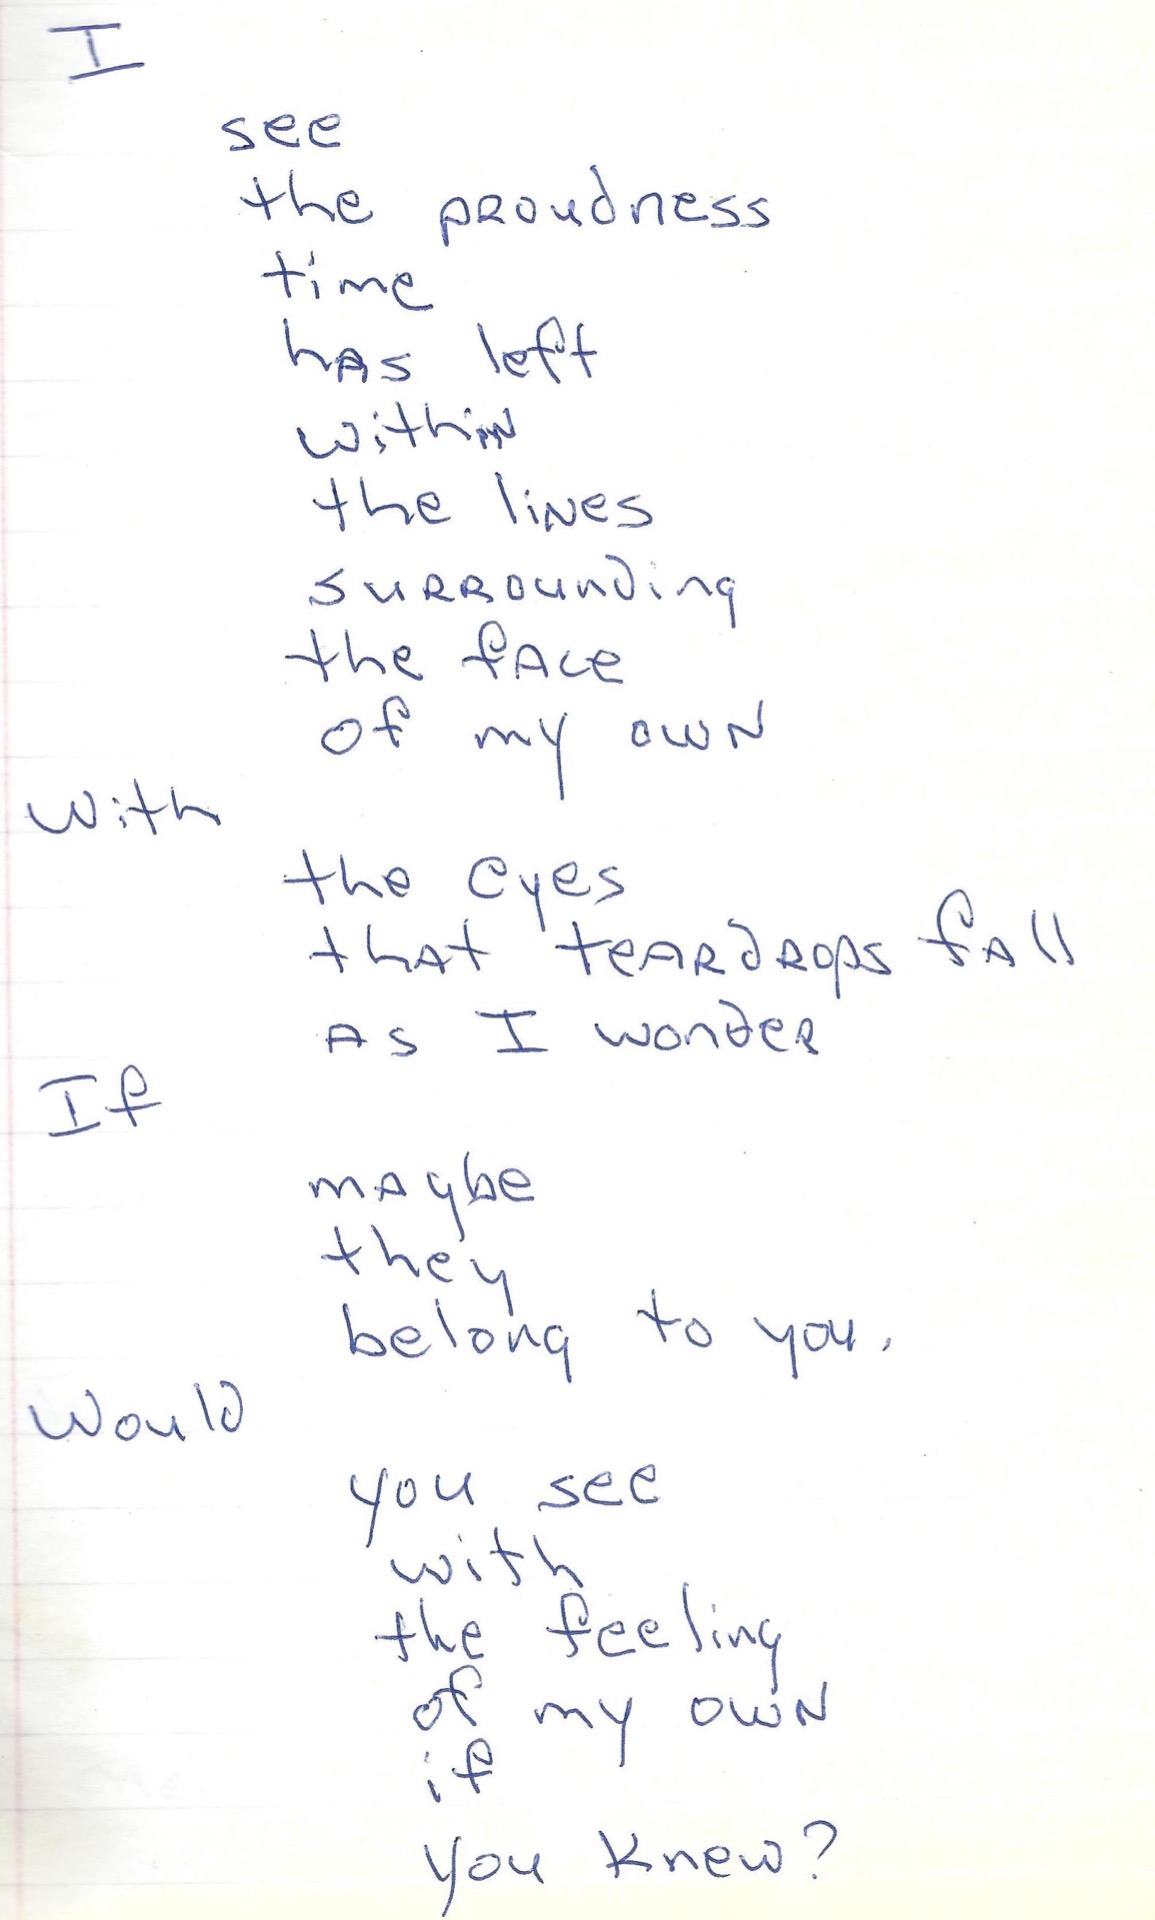 I
see
the proudness
time
has left
within
the lines
surrounding
the face
of my own
With
the eyes
that teardrops fall
as I wonder
If
maybe
they
belong to you.
Would
you see
with
the feeling
of my own
if
you knew?